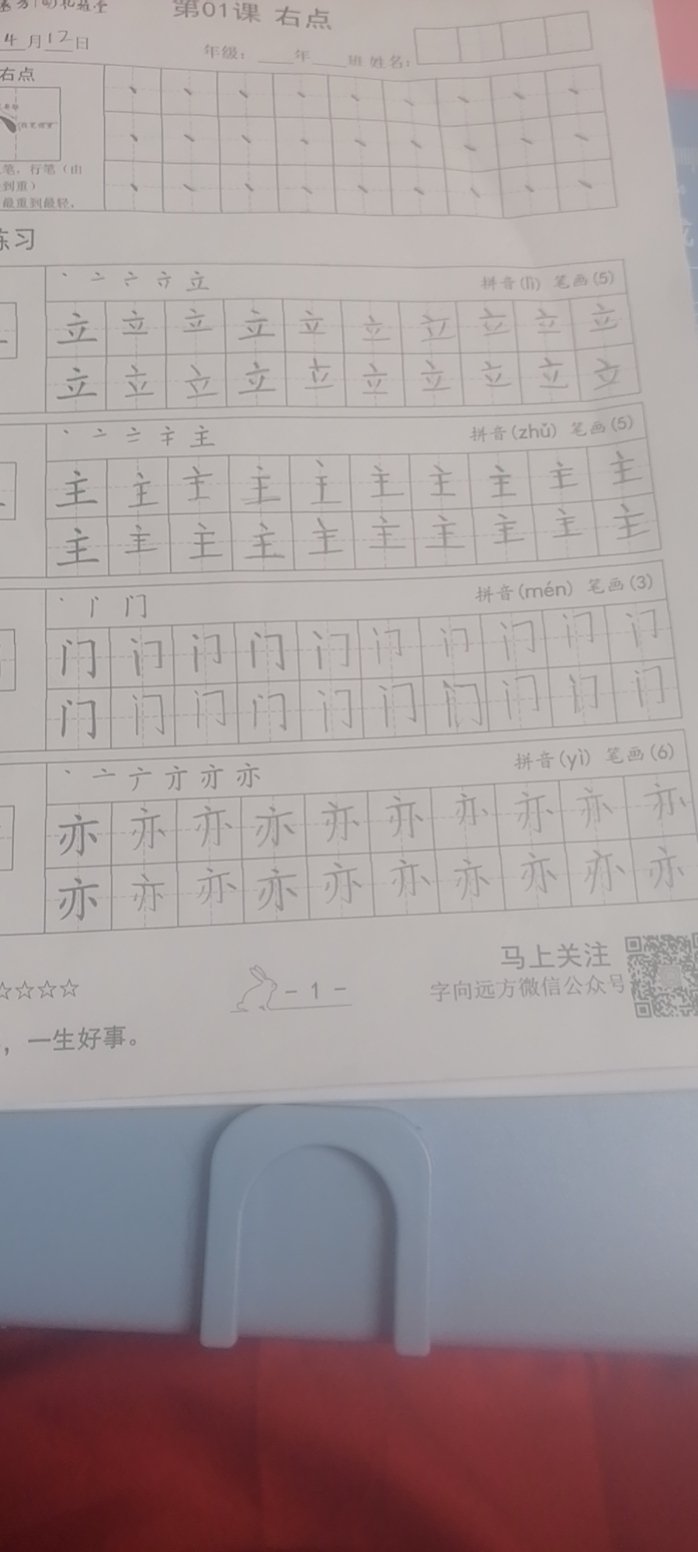 第01课 右点
4月12日
年级：____年____班 姓名：
右点
笔，行笔（由
到重）
最重到最轻，
练习
丶 亠 立 拼音(lì) 笔画(5)
立 立 立 立 立 立 立 立 立 立
立 立 立 立 立 立 立 立 立 立
丶 亠 主 拼音(zhǔ) 笔画(5)
主 主 主 主 主 主 主 主 主 主
主 主 主 主 主 主 主 主 主 主
丶 门 拼音(mén) 笔画(3)
门 门 门 门 门 门 门 门 门 门
门 门 门 门 门 门 门 门 门 门
丶 亠 亦 拼音(yì) 笔画(6)
亦 亦 亦 亦 亦 亦 亦 亦 亦 亦
亦 亦 亦 亦 亦 亦 亦 亦 亦 亦
☆☆☆☆
- 1 -
马上关注
字向远方微信公众号
，一生好事。